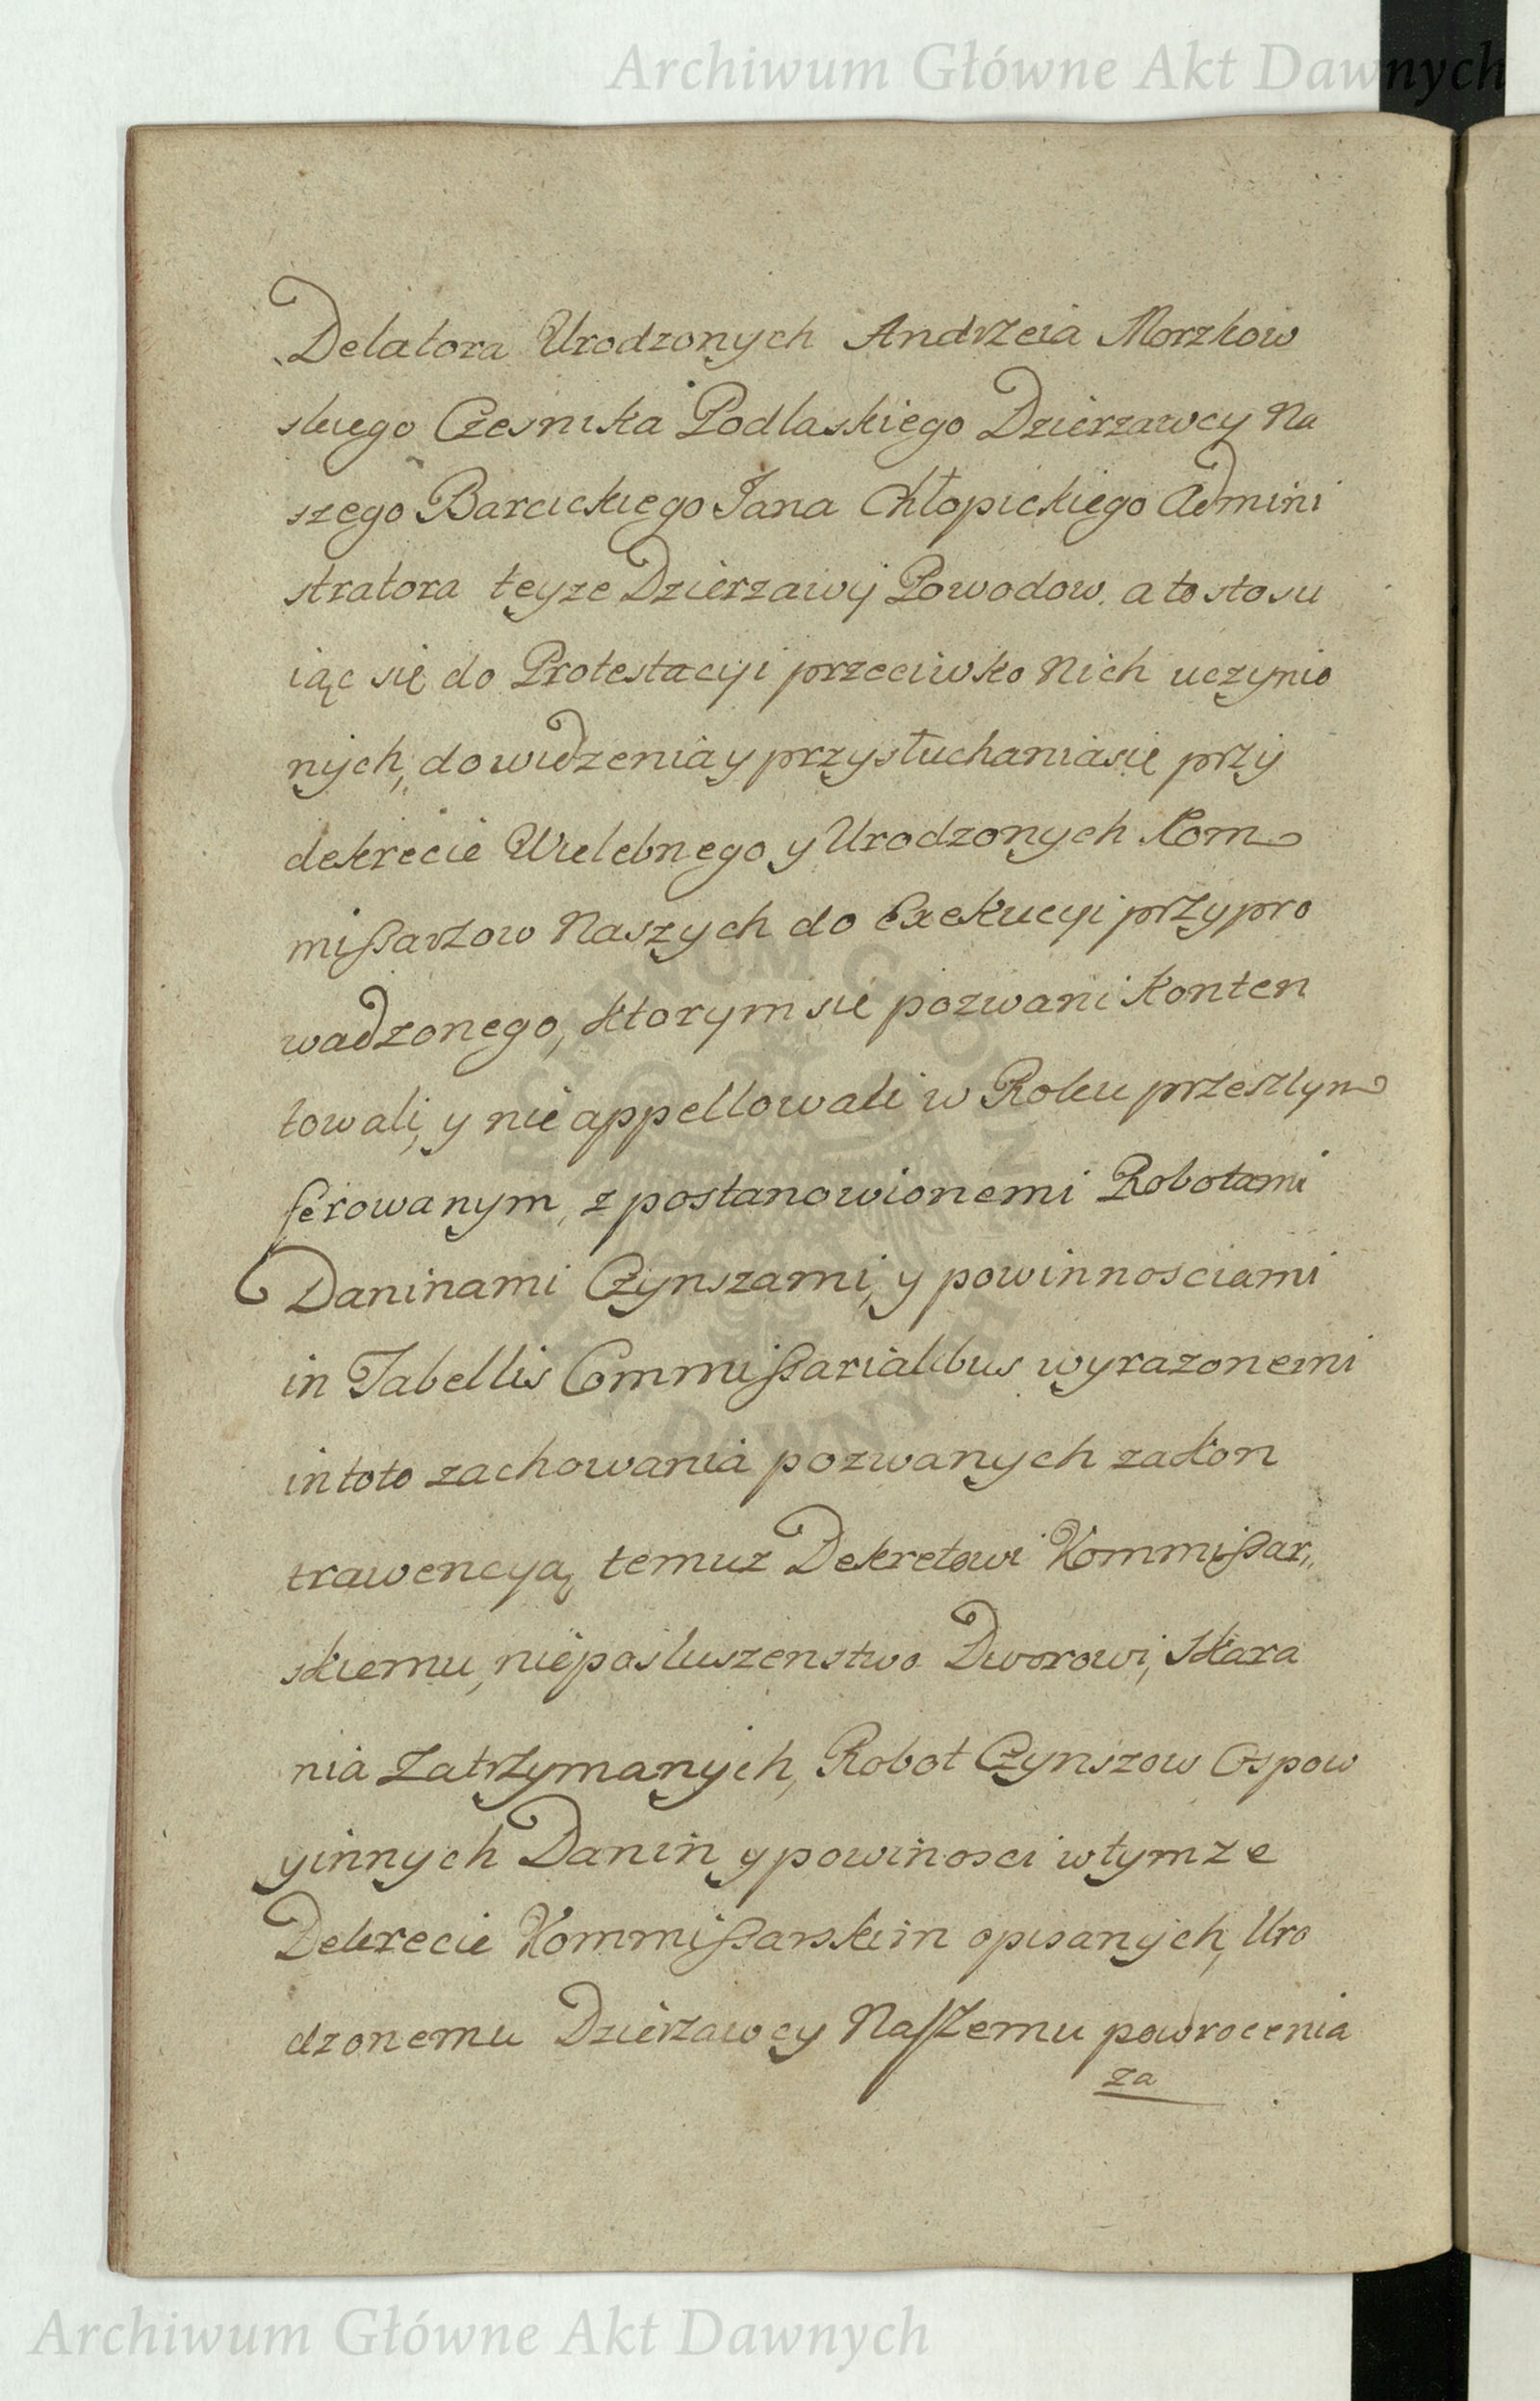 Archiwum Główne Akt Dawnych
Delatora Urodzonych Andrzeia Morzkow
skiego Czesnika Podlaskiego Dzierzawcy Na
szego Barcickiego Jana Chłopickiego Admini
stratora teyze Dzierzawy Powodow. a to stosu
iąc się do Protestacyi przeciwko Nich uczynio
nych, do widzenia y przysłuchania się przy
dekrecie Wielebnego y Urodzonych Kom
mißarzow Naszych do Exekucyi przypro
wadzonego, ktorym się pozwani konten
towali, y nie appellowali w Roku przeszlym
ferowanym, z postanowionemi Robotami
Daninami Czynszami, y powinnosciami
in Tabellis Commißarialibus wyrazonemi
in toto zachowania pozwanych za kon
trawencyą, temuz Dekretowi Kommißar„
skiemu, nieposluszenstwo Dworowi, skara
nia zatrzymanych, Robot Czynszow Ospow
y innych Danin y powinosci w tymze
Dekrecie Kommißarskim opisanych, Uro
dzonemu Dzierzawcy Naszemu powrocenia
za
ARCHIWUM GŁÓWNE AKT DAWNYCH
Archiwum Główne Akt Dawnych